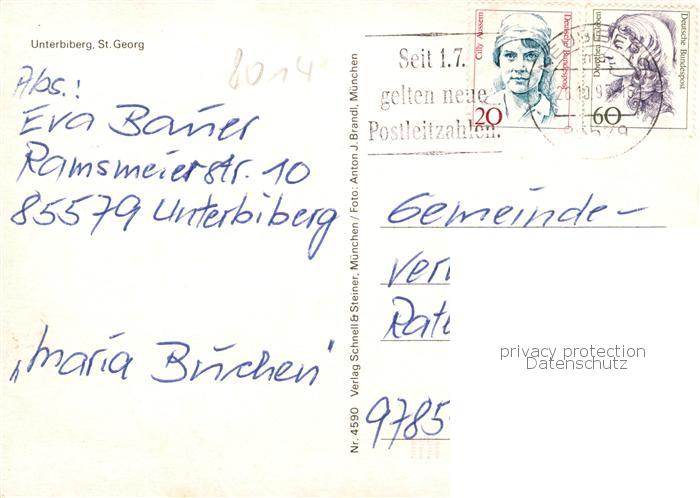 Unterbiberg, St. Georg
8014
Abs.:
Eva Bauer
Ramsmeierstr. 10
85579 Unterbiberg
„Maria Buchen"
Nr. 4590 Verlag Schnell & Steiner, München / Foto: Anton J. Brandl, München
Seit 1.7.
gelten neue
Postleitzahlen.
Cilly Aussem
Deutsche Bundespost
20
Dorothea Erxleben
Deutsche Bundespost
60
85579
Gemeinde-
Ver
Rat
9785
privacy protection
Datenschutz